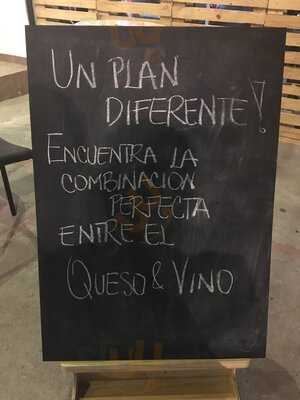 UN PLAN
DIFERENTE!
ENCUENTRA LA
COMBINACION
PERFECTA
ENTRE EL
QUESO & VINO